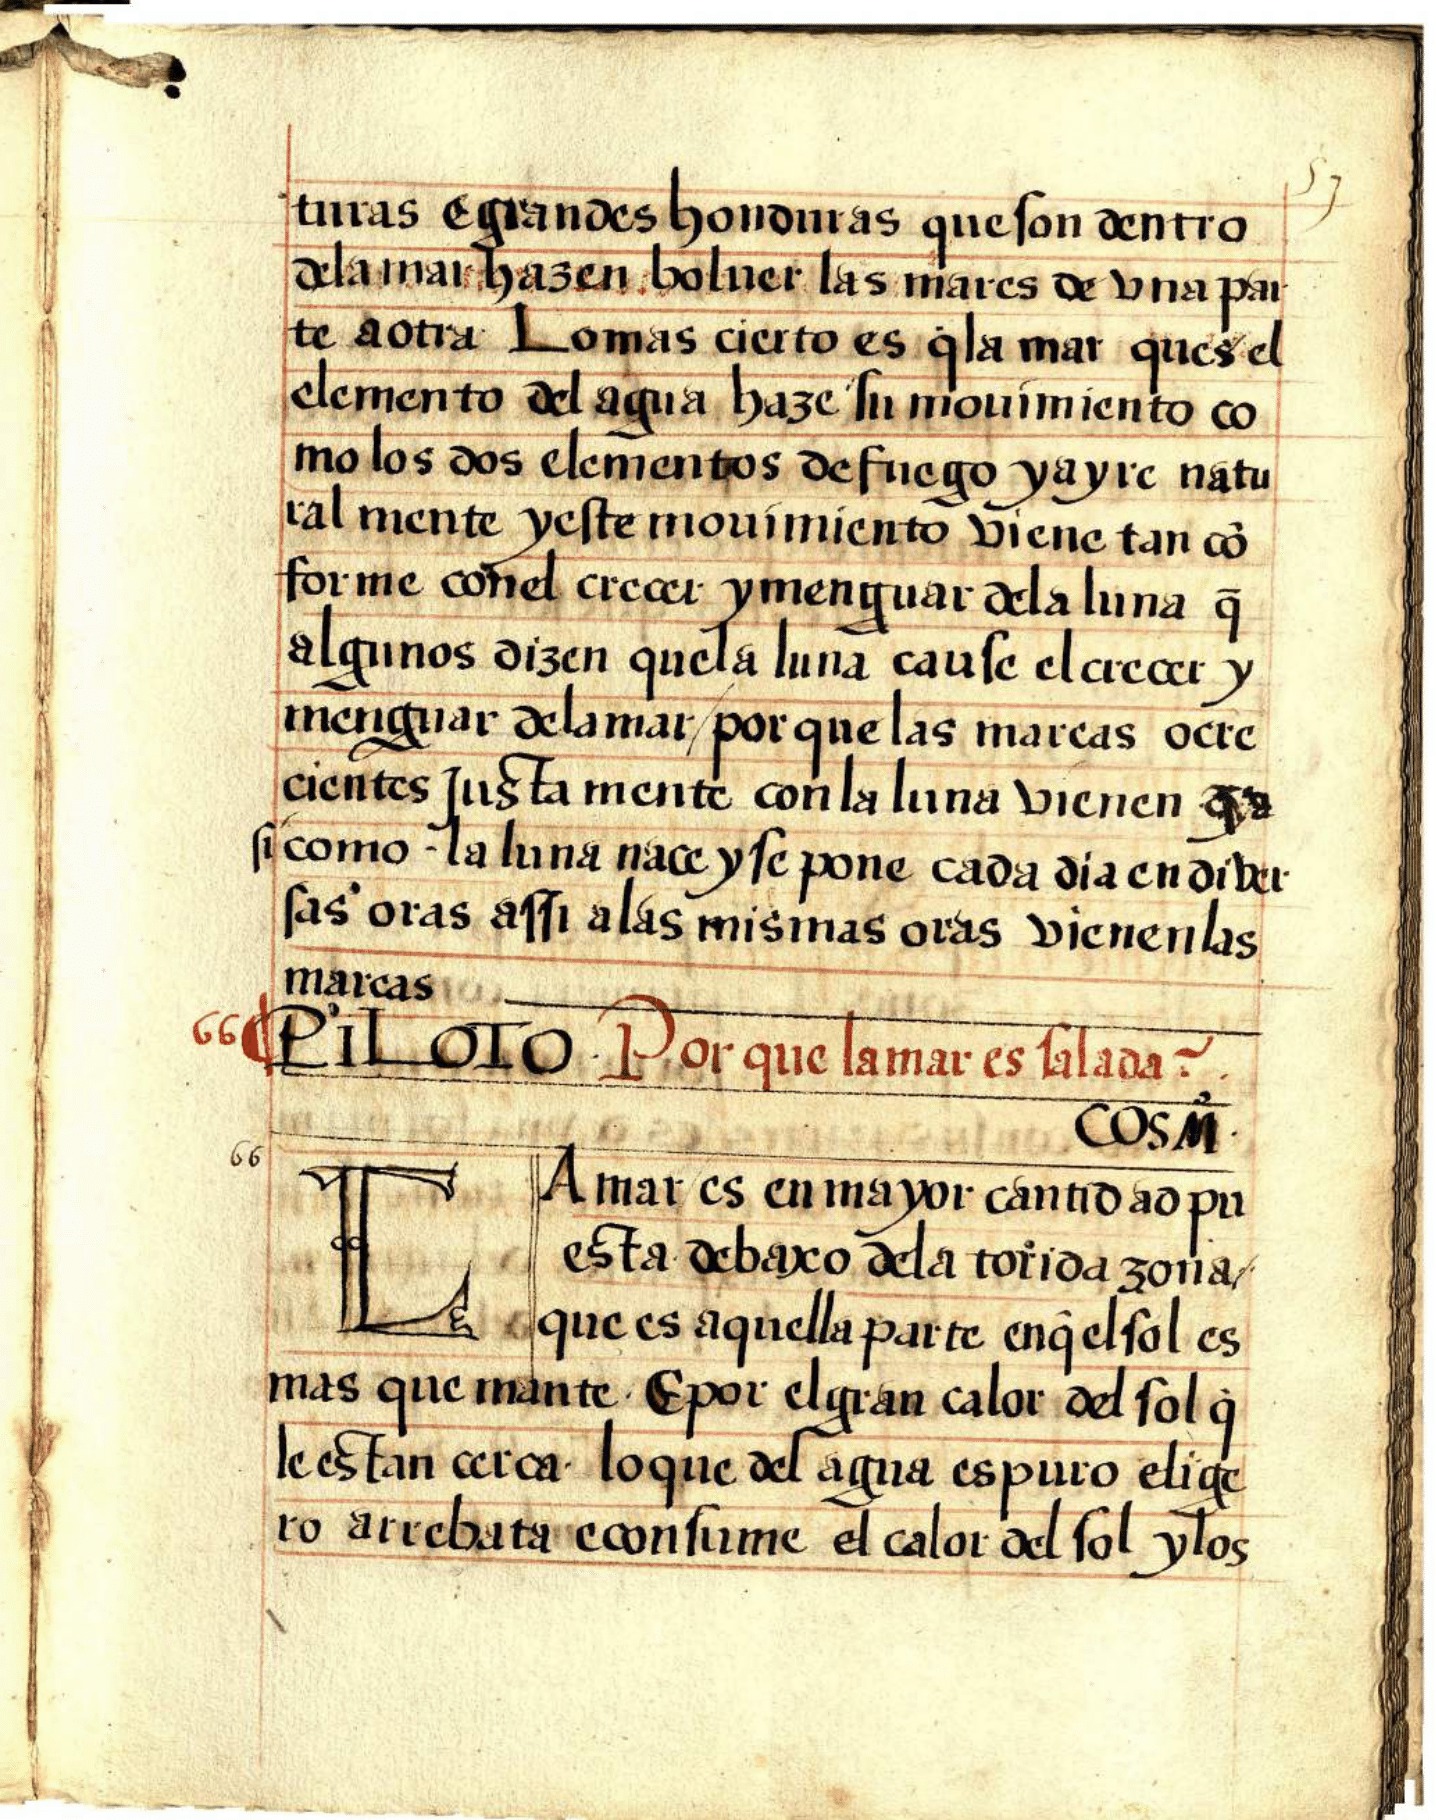 57
turas e grandes honduras que son dentro
dela mar hazen boluer las mares de vna par
te a otra Lo mas cierto es q̃ la mar ques el
elemento del agua haze su mouimiento co
mo los dos elementos de fuego y ayre natu
ral mente y este mouimiento viene tan cõ
forme conel crecer y menguar dela luna q̃
algunos dizen quela luna cause el crecer y
menguar dela mar / por que las mareas o cre
cientes Justa mente con la luna vienen
si como la luna nace y se pone cada dia en diver
sas oras assi a las mismas oras vienen las
mareas
66 PILOTO. Por que la mar es salada?.
COSMº.
66 LA mar es en mayor cantidad pu
esta debaxo dela torrida zona /
que es aquella parte enq̃ el sol es
mas que mante. E por el gran calor del sol q̃
le estan cerca. lo que del agua es puro e lige
ro arrebata e consume el calor del sol y los